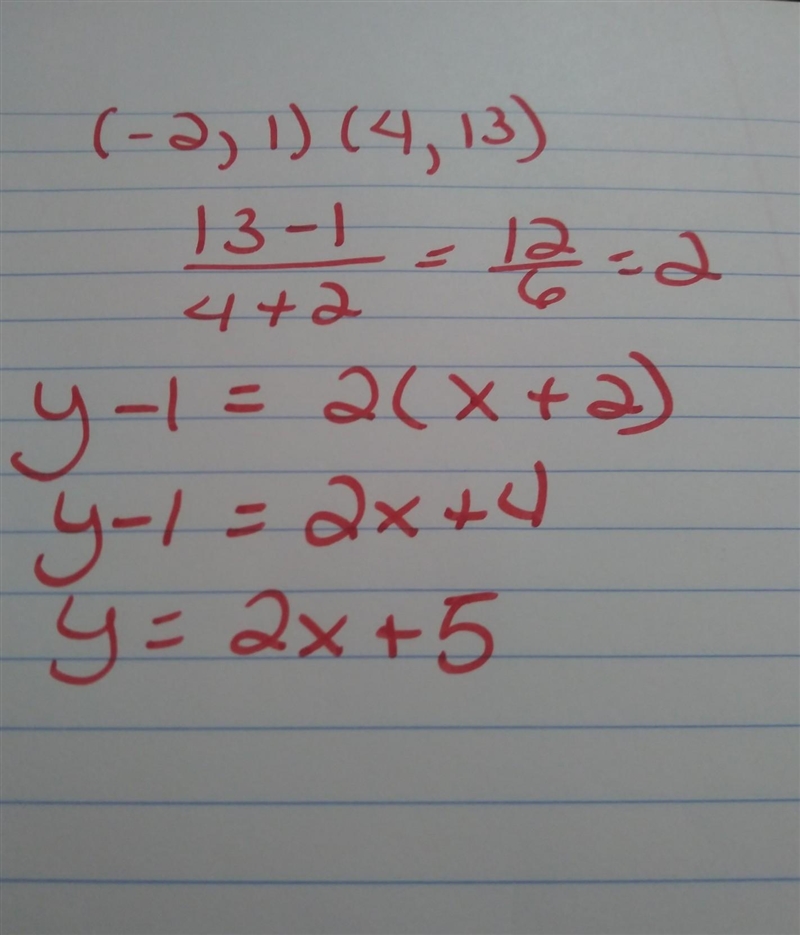 (-2, 1) (4, 13)
13-1/4+2 = 12/6 = 2
y-1 = 2(x+2)
y-1 = 2x+4
y = 2x+5